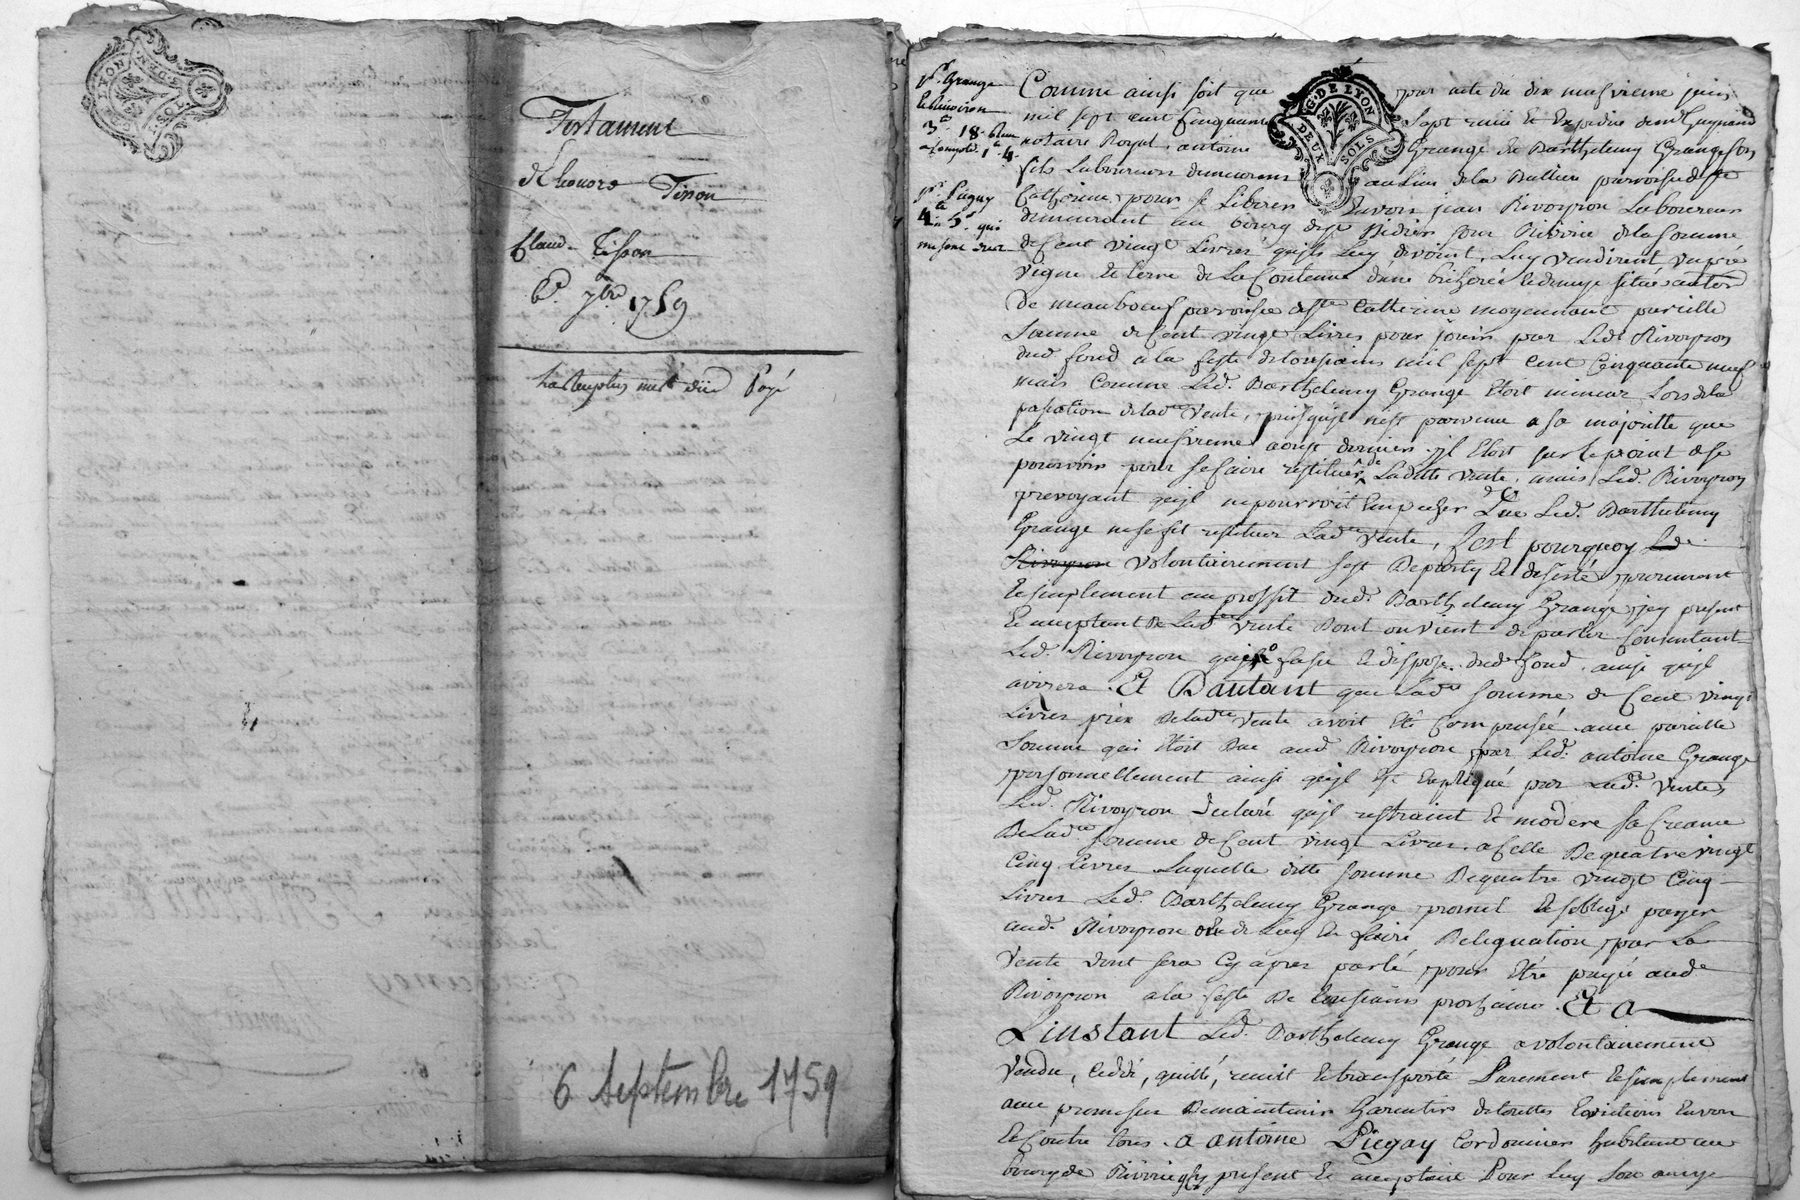 G. DE LYON
DEUX SOLS
Testament
d'Eleonore Tison
Claude Tisson
6e 7bre 1759
Payé
6 Septembre 1759
pr Grange
et Rivoiron
3tt 18s
1tt 4s
pr Piegay
4tt
G. DE LYON
DEUX SOLS
Comme ainsi soit que par acte du dix neufvieme juin
mil sept cent Cinquante Sept reçu et Expedié
notaire Royal, antoine Grange et Barthelemy Grange son
fils Laboureurs demeurans au Lieu de la parroisse de Ste
Catherine, pour se Liberer Envers jean Rivoyron Laboureur
demeurant au bourg de st Didier sous Riverie de la somme
de Cent vingt Livres qu'ils Luy devoint, Luy vendirent un pré
vigne et terre de La Contenue d'une située
de parroisse de Ste Catherine moyennant pareille
Somme de Cent vingt Livres pour jouir par Led. Rivoyron
dud. fond a la feste de toussains mil sept Cent Cinquante neuf
mais Comme Led. Barthelemy Grange Etoit mineur Lors de la
passation de lade vente, puisqu'jl n'est parvenu a sa majorité que
Le vingt neufvieme aoust dernier, jl Etoit sur le point de se
pourvoir pour se faire restituer de Laditte vente, mais Led. Rivoyron
prevoyant qu'jl ne pourroit Empecher que Led. Barthelemy
Grange ne se fit restituer Lade vente, C'est pourquoy Led.
Rivoyron volontairement s'est Departy et desisté purement
et simplement au proffit dud. Barthelemy Grange jcy present
Et acceptant de Lade vente dont on vient de parler Consentant
Led. Rivoyron qu'jl fasse et dispose dud. fond ainsi qu'jl
avisera. Et Dautant que Lade somme de Cent vingt
Livres prix de lade vente avoit Eté Compensée avec pareille
Somme qui Etoit Due aud. Rivoyron par Led. antoine Grange
personnellement ainsi qu'jl Est Expliqué par Lade vente,
Led. Rivoyron declaré qu'jl restraint et modere sa Creance
De Lade somme de Cent vingt Livres a Celle de quatre vingt
Cinq Livres Laquelle ditte somme De quatre vingt Cinq
Livres Led. Barthelemy Grange promet et s'oblige payer
aud. Rivoyron ou de Luy En faire Delegation par La
vente dont sera Cy apres parlé, pour Etre payée aud.
Rivoyron a la feste de toussains prochaine. Et a
L'instant Led. Barthelemy Grange a volontairement
vendu, Ceddé, quitté, remit et transporté Purement et simplement
avec promesse de maintenir Garentir de touttes Evictions Envers
Et Contre tous. a antoine Piegay Cordonnier habitant au
bourg de Riverie jcy present Et acceptant Pour Luy